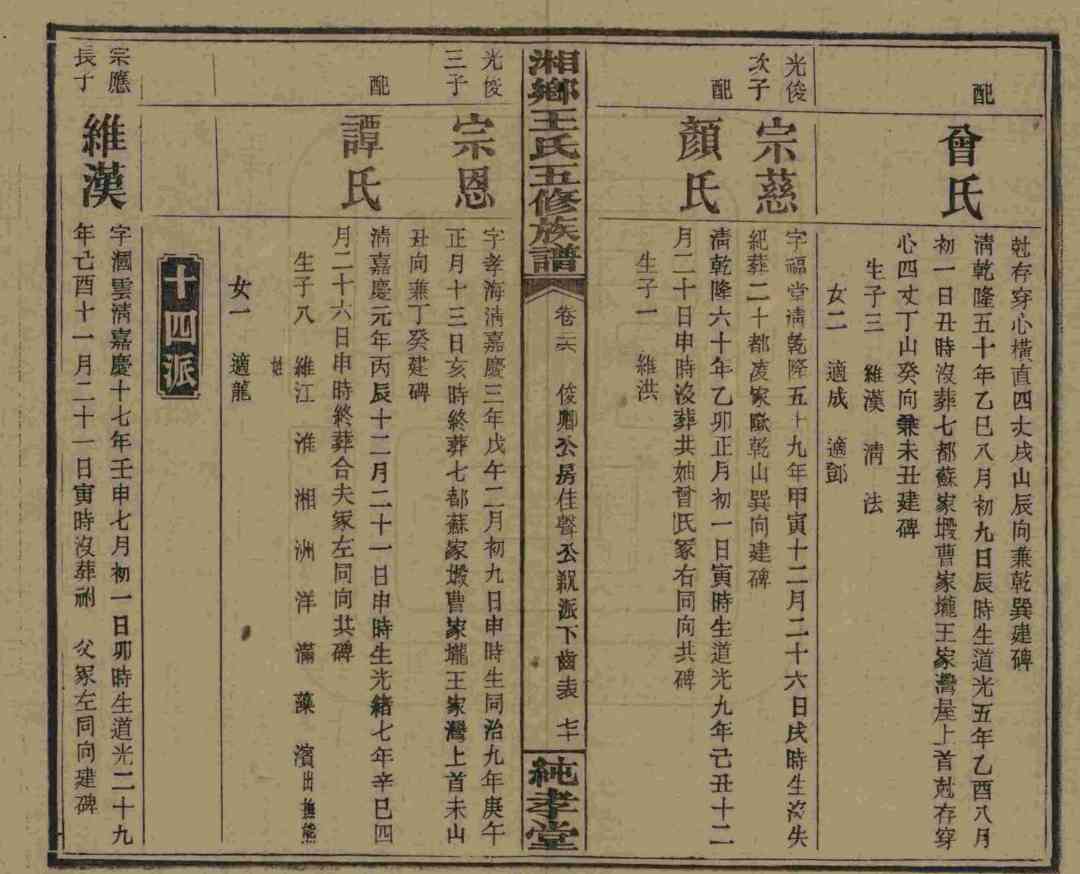 尅存穿心橫直四丈戌山辰向兼乾巽建碑
配
曾氏
淸乾隆五十年乙巳八月初九日辰時生道光五年乙酉八月
初一日丑時沒葬七都蘇家塅曹家壠王家灣屋上首尅存穿
心四丈丁山癸向兼未丑建碑
生子三 維漢 淸 法
女二 適成 適鄧
光俊次子
宗慈
字福堂淸乾隆五十九年甲寅十二月二十六日戌時生沒失
紀葬二十都凌家 乾山巽向建碑
配
顏氏
淸乾隆六十年乙卯正月初一日寅時生道光九年己丑十二
月二十日申時沒葬共妯曾氏冢右同向共碑
生子一 維洪
湘鄉王氏五修族譜
卷 俊卿公房佳聲公親派下齒表
純孝堂
光俊三子
宗恩
字孝海淸嘉慶三年戊午二月初九日申時生同治九年庚午
正月十三日亥時終葬七都蘇家塅曹家壠王家灣上首未山
丑向兼丁癸建碑
配
譚氏
淸嘉慶元年丙辰十二月二十一日申時生光緒七年辛巳四
月二十六日申時終葬合夫冢左同向共碑
生子八 維江 淮 湘 洲 洋 滿 藻 濱出撫熊姓
女一 適龍
十四派
宗應長子
維漢
字漍雲淸嘉慶十七年壬申七月初一日卯時生道光二十九
年己酉十一月二十一日寅時沒葬祔 父冢左同向建碑